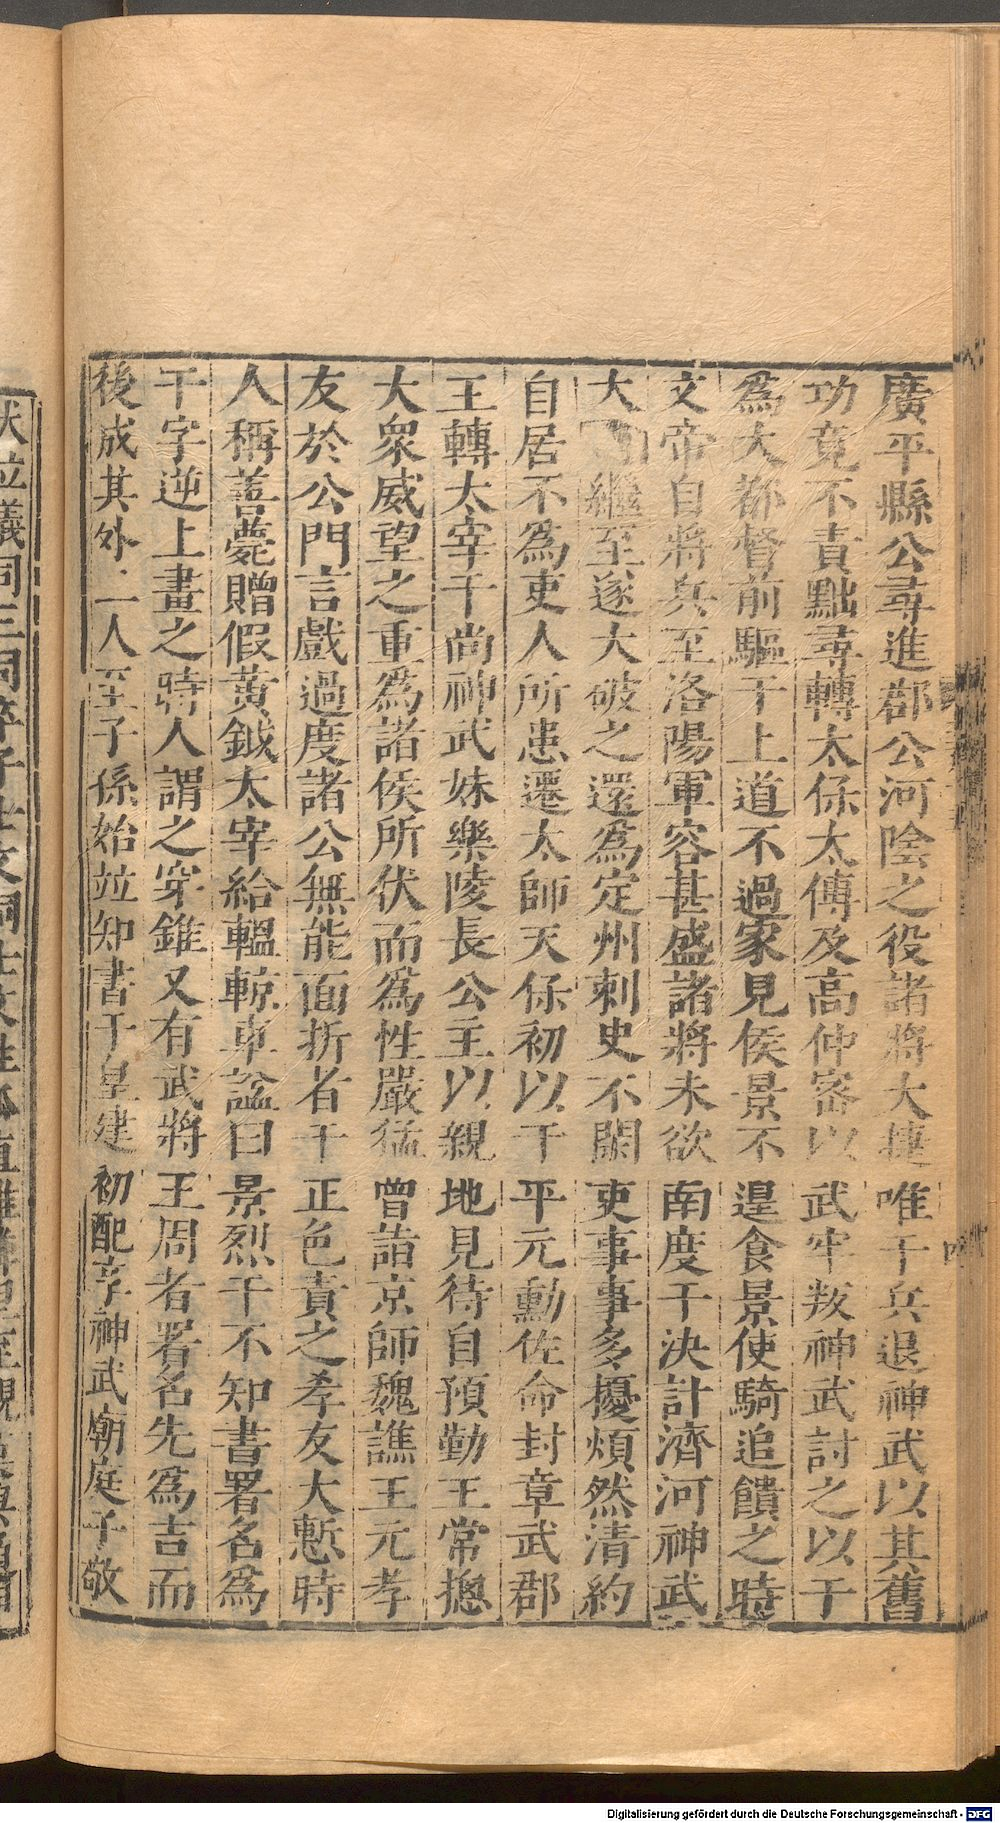 廣平縣公尋進郡公河陰之役諸將大捷唯干兵退神武以其舊
功竟不責黜尋轉太保太傅及高仲密以武牢叛神武討之以干
爲大都督前驅干上道不過家見侯景不遑食景使騎追饋之時
文帝自將兵至洛陽軍容甚盛諸將未欲南度干決計濟河神武
大繼至遂大破之還爲定州刺史不閑吏事事多擾煩然清約
自居不爲吏人所患遷太師天保初以干平元勳佐命封章武郡
王轉太宰干尚神武妹樂陵長公主以親地見待自預勤王常摠
大眾威望之重爲諸侯所伏而爲性嚴猛曾詣京師魏譙王元孝
友於公門言戲過度諸公無能面折者干正色責之孝友大慙時
人稱善薨贈假黃鉞太宰給轀輬車諡曰景烈干不知書署名爲
干字逆上畫之時人謂之穿錐又有武將王周者署名先爲吉而
後成其外二人至子孫始並知書干皇建初配享神武廟庭子敬
Digitalisierung gefördert durch die Deutsche Forschungsgemeinschaft - DFG